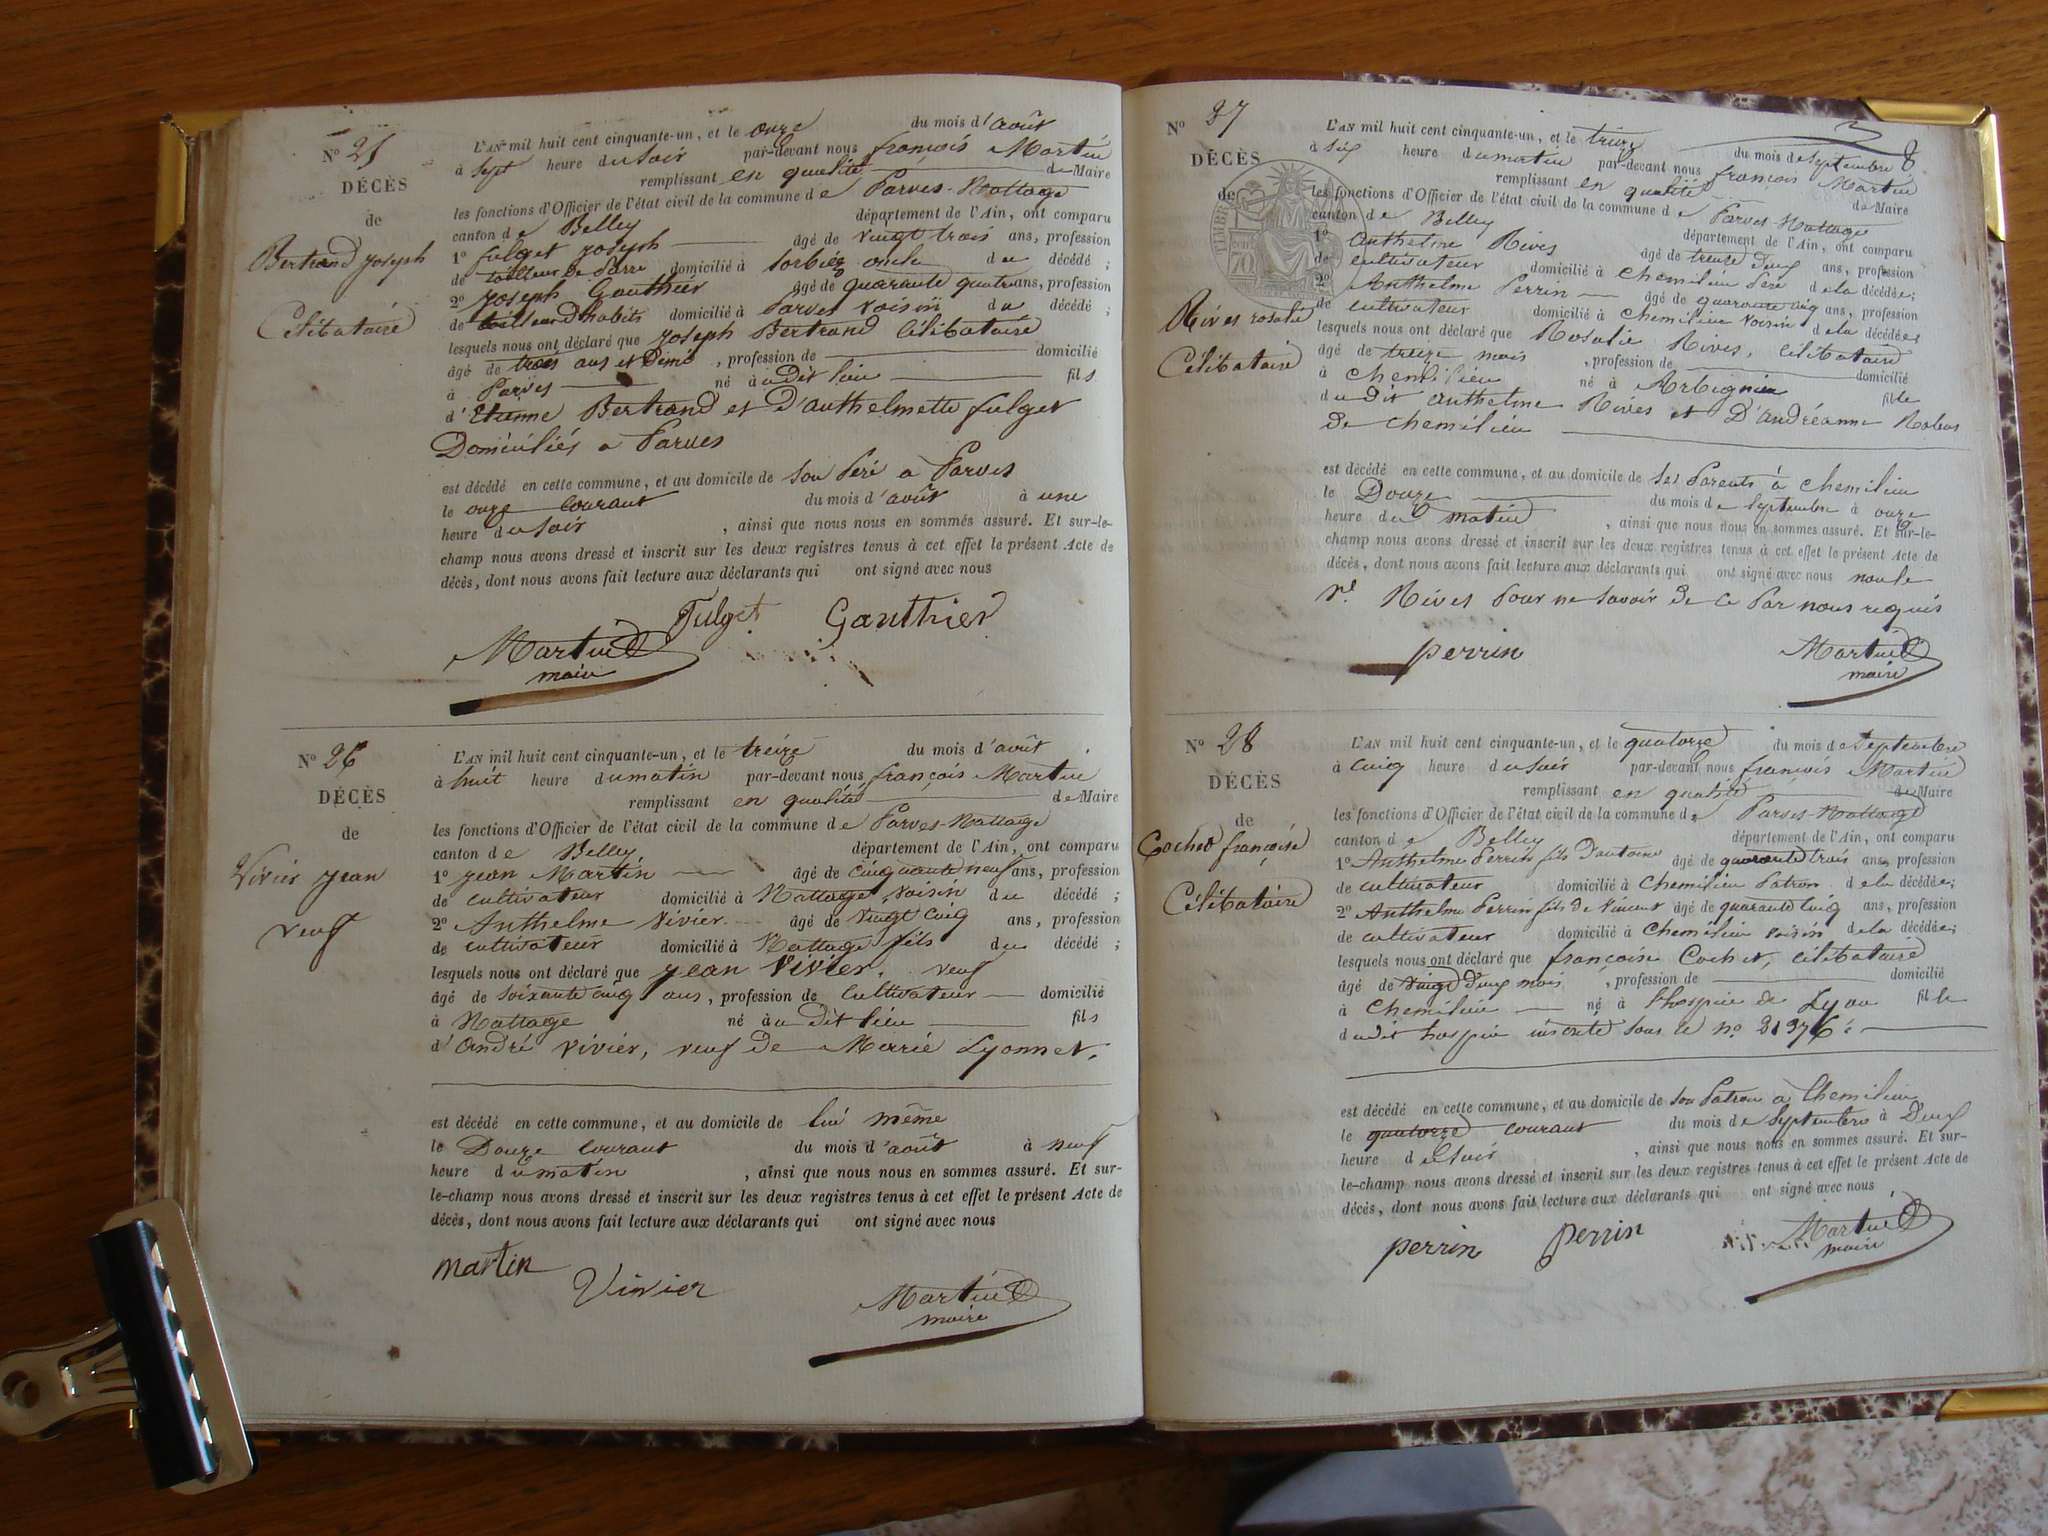 N° 25
DÉCÈS
de
Bertrand Joseph
Célibataire
L'AN mil huit cent cinquante-un, et le onze du mois d'août
à sept heure du soir par-devant nous françois Martin
remplissant en qualité de Maire
les fonctions d'Officier de l'état civil de la commune de Parves-Nattage
canton de Belley département de l'Ain, ont comparu
1° fulget Joseph âgé de vingt trois ans, profession
de tailleur de Pierre domicilié à Sorbiez oncle du décédé ;
2° Joseph Gauthier âgé de quarante quatre ans, profession
de tailleur d'habits domicilié à Parves voisin du décédé ;
lesquels nous ont déclaré que Joseph Bertrand Célibataire
âgé de trois ans et Demi , profession de domicilié
à Parves né à u Dit lieu fils
d'Etienne Bertrand et D'authelmette fulget
Domiciliés a Parves
est décédé en cette commune, et au domicile de son Péré a Parves
le onze courant du mois d'août à une
heure du soir , ainsi que nous nous en sommés assuré. Et sur-le-
champ nous avons dressé et inscrit sur les deux registres tenus à cet effet le présent Acte de
décès, dont nous avons fait lecture aux déclarants qui ont signé avec nous
Fulget Gauthier
Martin
maire
N° 26
DÉCÈS
de
Vivier Jean
veuf
L'AN mil huit cent cinquante-un, et le treize du mois d'août
à huit heure du matin par-devant nous françois Martin
remplissant en qualité de Maire
les fonctions d'Officier de l'état civil de la commune de Parves-Nattage
canton de Belley département de l'Ain, ont comparu
1° Jean Martin âgé de cinquante neuf ans, profession
de cultivateur domicilié à Nattage, voisin du décédé ;
2° Anthelme Vivier âgé de vingt cinq ans, profession
de cultivateur domicilié à Nattage fils du décédé ;
lesquels nous ont déclaré que Jean Vivier, veuf
âgé de soixante cinq ans, profession de Cultivateur domicilié
à Nattage né à u dit lieu fils
d'André Vivier, veuf de Marie Lyonnet.
est décédé en cette commune, et au domicile de lui même
le Douze courant du mois d'août à neuf
heure du matin , ainsi que nous nous en sommes assuré. Et sur-
le-champ nous avons dressé et inscrit sur les deux registres tenus à cet effet le présent Acte de
décès, dont nous avons fait lecture aux déclarants qui ont signé avec nous
martin
Vivier
Martin
maire
8
N° 27
DÉCÈS
de
Rives rosalie
Célibataire
TIMBRE
70
L'AN mil huit cent cinquante-un, et le treize du mois de septembre
à six heure du matin par-devant nous françois Martin
remplissant en qualité de Maire
les fonctions d'Officier de l'état civil de la commune de Parves-Nattage
canton de Belley département de l'Ain, ont comparu
1° Anthelme Rives âgé de trente Deux ans, profession
de cultivateur domicilié à Chemilieu Péré de la décédée;
2° Anthelme Perrin âgé de quarante cinq ans, profession
de cultivateur domicilié à Chemilieu voisin de la décédée;
lesquels nous ont déclaré que Rosalie Rives, célibataire
âgé de treize mois , profession de domicilié
à Chemilieu né à Arbignieu fille
du dit Anthelme Rives et D'andréanne
de Chemilieu
est décédé en cette commune, et au domicile de ses Parents à Chemilieu
le Douze du mois de Septembre à onze
heure du matin , ainsi que nous nous en sommes assuré. Et sur-le-
champ nous avons dressé et inscrit sur les deux registres tenus à cet effet le présent Acte de
décès, dont nous avons fait lecture aux déclarants qui ont signé avec nous non le
Rives Pour ne savoir de ce Par nous requis
perrin
Martin
maire
N° 28
DÉCÈS
de
Cochet françoise
Célibataire
L'AN mil huit cent cinquante-un, et le quatorze du mois de Septembre
à cinq heure du soir par-devant nous françois Martin
remplissant en qualité de Maire
les fonctions d'Officier de l'état civil de la commune de Parves-Nattage
canton de Belley département de l'Ain, ont comparu
1° Anthelme Perrin fils D'antoine âgé de quarante trois ans, profession
de cultivateur domicilié à Chemilieu Patron de la décédée;
2° Anthelme Perrin fils de Vincent âgé de quarante Cinq ans, profession
de cultivateur domicilié à Chemilieu voisin de la décédée;
lesquels nous ont déclaré que françoise Cochet, célibataire
âgé de vingt Deux mois , profession de domicilié
à Chemilieu né à l'hospice de Lyon fille
du dit hospice inscrite sous le n° 21376
est décédé en cette commune, et au domicile de son Patron à Chemilieu
le quatorze courant du mois de Septembre à Deux
heure du soir , ainsi que nous nous en sommes assuré. Et sur-
le-champ nous avons dressé et inscrit sur les deux registres tenus à cet effet le présent Acte de
décès, dont nous avons fait lecture aux déclarants qui ont signé avec nous
perrin perrin Martin
maire